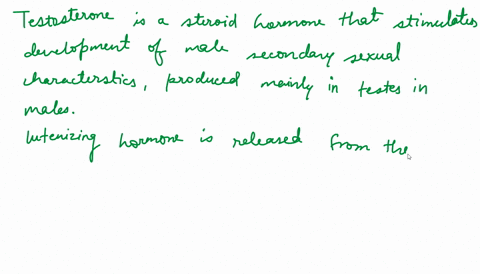 Testosterone is a steroid hormone that stimulates
development of male secondary sexual
characterstics, produced mainly in testes in
males.
lutenizing hormone is released from the